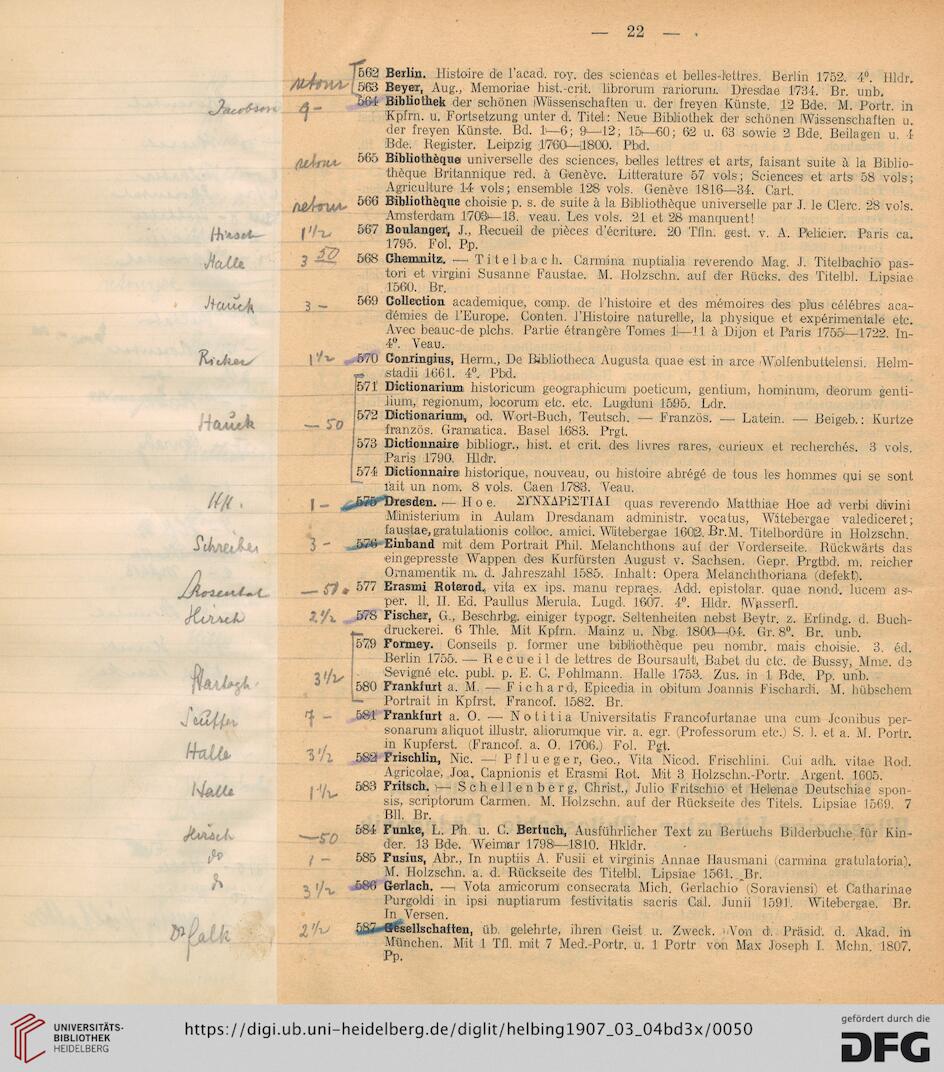 — 22 —
retour 562 Berlin. Histoire de l'acad. roy. des sciencas et belles-lettres. Berlin 1752. 4⁰. Hldr.
563 Beyer, Aug., Memoriae hist.-crit. librorum rariorum. Dresdae 1734. Br. unb.
Jacobson 9 — 564 Bibliothek der schönen Wissenschaften u. der freyen Künste. 12 Bde. M. Portr. in
Kpfrn. u. Fortsetzung unter d. Titel: Neue Bibliothek der schönen Wissenschaften u.
der freyen Künste. Bd. 1—6; 9—12; 15—60; 62 u. 63 sowie 2 Bde. Beilagen u. 4
Bde. Register. Leipzig 1760—1800. Pbd.
retour 565 Bibliothèque universelle des sciences, belles lettres et arts, faisant suite à la Biblio-
thèque Britannique red. à Genève. Litterature 57 vols; Sciences et arts 58 vols;
Agriculture 14 vols; ensemble 128 vols. Genève 1816—34. Cart.
retour 566 Bibliothèque choisie p. s. de suite à la Bibliothèque universelle par J. le Clerc. 28 vols.
Amsterdam 1703—13. veau. Les vols. 21 et 28 manquent!
Hirsch 1½ 567 Boulanger, J., Recueil de pièces d'écriture. 20 Tfln. gest. v. A. Pelicier. Paris ca.
1795. Fol. Pp.
Halle 3 50 568 Chemnitz. — Titelbach. Carmina nuptialia reverendo Mag. J. Titelbachio pas-
tori et virgini Susanne Faustae. M. Holzschn. auf der Rücks. des Titelbl. Lipsiae
1560. Br.
Hauck 3 — 569 Collection academique, comp. de l'histoire et des mémoires des plus célébres aca-
démies de l'Europe. Conten. l'Histoire naturelle, la physique et expérimentale etc.
Avec beauc-de plchs. Partie étrangère Tomes 1—11 à Dijon et Paris 1755—1722. In-
4⁰. Veau.
Ricker 1½ 570 Conringius, Herm., De Bibliotheca Augusta quae est in arce Wolfenbuttelensi. Helm-
stadii 1661. 4⁰. Pbd.
571 Dictionarium historicum geographicum poeticum, gentium, hominum, deorum genti-
lium, regionum, locorum etc. etc. Lugduni 1595. Ldr.
Hauck — 50 572 Dictionarium, od. Wort-Buch, Teutsch. — Französ. — Latein. — Beigeb.: Kurtze
französ. Gramatica. Basel 1683. Prgt.
573 Dictionnaire bibliogr., hist. et crit. des livres rares, curieux et recherchés. 3 vols.
Paris 1790. Hldr.
574 Dictionnaire historique, nouveau, ou histoire abrégé de tous les hommes qui se sont
fait un nom. 8 vols. Caen 1783. Veau.
HH. 1 — 575 Dresden. — Hoe. ΣΓΝΧΔΡΙΣΤΙΑΙ quas reverendo Matthiae Hoe ad verbi divini
Ministerium in Aulam Dresdanam administr. vocatus, Witebergae valediceret;
faustae, gratulationis colloc. amici. Witebergae 1602. Br. M. Titelbordüre in Holzschn.
Schreiber 3 — 576 Einband mit dem Portrait Phil. Melanchthons auf der Vorderseite. Rückwärts das
eingepresste Wappen des Kurfürsten August v. Sachsen. Gepr. Prgtbd. m. reicher
Ornamentik m. d. Jahreszahl 1585. Inhalt: Opera Melanchthoriana (defekt).
Rosenthal — 50. 577 Erasmi Roterod. vita ex ips. manu repraes. Add. epistolar. quae nond. lucem as-
per. ll. II. Ed. Paullus Merula. Lugd. 1607. 4⁰. Hldr. Wasserfl.
Hirsch 2½ 578 Fischer, G., Beschrbg. einiger typogr. Seltenheiten nebst Beytr. z. Erfindg. d. Buch-
druckerei. 6 Thle. Mit Kpfrn. Mainz u. Nbg. 1800—04. Gr. 8⁰. Br. unb.
579 Formey. Conseils p. former une bibliothèque peu nombr. mais choisie. 3. éd.
Berlin 1755. — Recueil de lettres de Boursault, Babet du ctc. de Bussy, Mme. de
Hartogh. 3½ Sevigné etc. publ. p. E. C. Pohlmann. Halle 1753. Zus. in 1 Bde. Pp. unb.
580 Frankfurt a. M. — Fichard, Epicedia in obitum Joannis Fischardi. M. hübschem
Portrait in Kpfrst. Francof. 1582. Br.
Seuffer 7 — 581 Frankfurt a. O. — Notitia Universitatis Francofurtanae una cum Jconibus per-
sonarum aliquot illustr. aliorumque vir. a. egr. (Professorum etc.) S. l. et a. M. Portr.
in Kupferst. (Francof. a. O. 1706.) Fol. Pgt.
Halle 3½ 582 Frischlin, Nic. — Pflueger, Geo., Vita Nicod. Frischlini. Cui adh. vitae Rod.
Agricolae, Joa. Capnionis et Erasmi Rot. Mit 3 Holzschn.-Portr. Argent. 1605.
Halle 1½ 583 Fritsch. — Schellenberg, Christ., Julio Fritschio et Helenae Deutschiae spon-
sis, scriptorum Carmen. M. Holzschn. auf der Rückseite des Titels. Lipsiae 1569. 7
Bll. Br.
Hirsch — 50 584 Funke, L. Ph. u. C. Bertuch, Ausführlicher Text zu Bertuchs Bilderbuche für Kin-
der. 13 Bde. Weimar 1798—1810. Hkldr.
do 1 — 585 Fusius, Abr., In nuptiis A. Fusii et virginis Annae Hausmani (carmina gratulatoria).
M. Holzschn. a. d. Rückseite des Titelbl. Lipsiae 1561. Br.
do 3½ 586 Gerlach. — Vota amicorum consecrata Mich. Gerlachio (Soraviensi) et Catharinae
Purgoldi in ipsi nuptiarum festivitatis sacris Cal. Junii 1591. Witebergae. Br.
In Versen.
Dr Falk 2½ 587 Gesellschaften, üb. gelehrte, ihren Geist u. Zweck. Von d. Präsid. d. Akad. in
München. Mit 1 Tfl. mit 7 Med.-Portr. u. 1 Portr von Max Joseph I. Mchn. 1807.
Pp.
UNIVERSITÄTS-
BIBLIOTHEK
HEIDELBERG
https://digi.ub.uni-heidelberg.de/diglit/helbing1907_03_04bd3x/0050
gefördert durch die
DFG